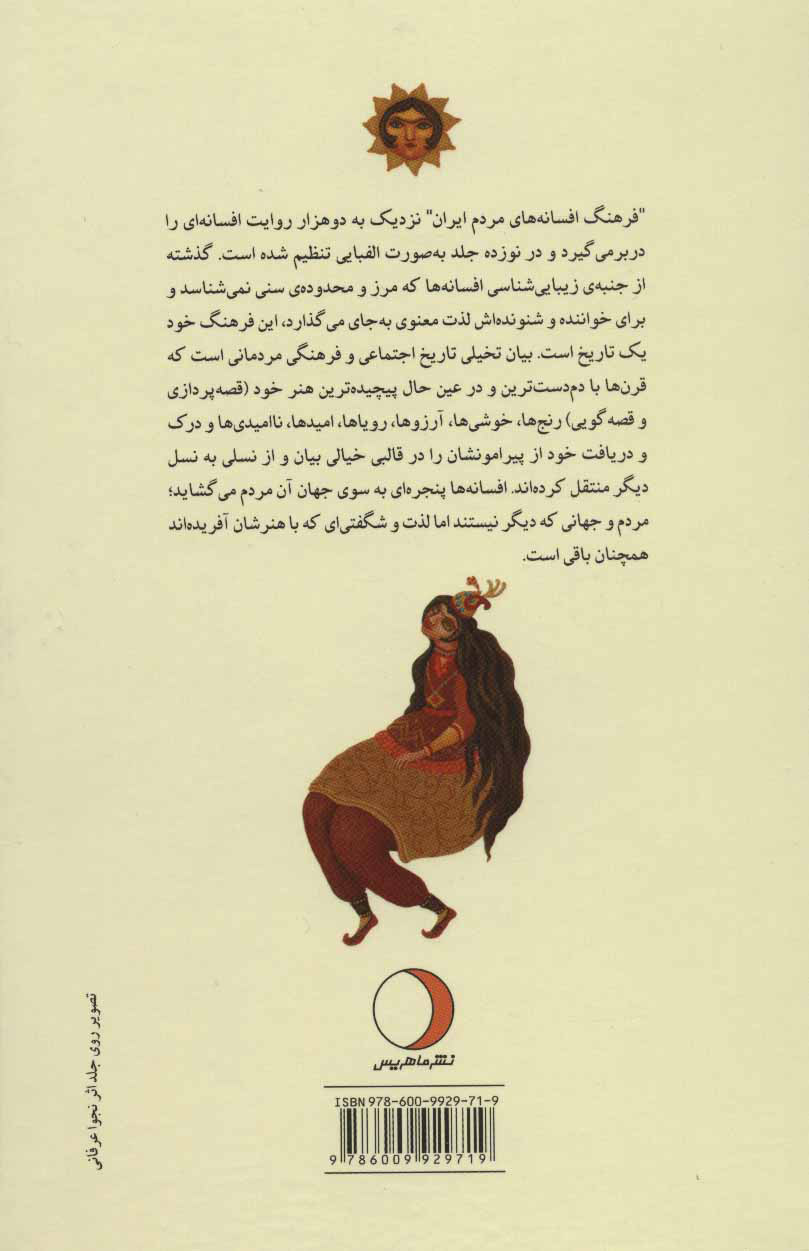 "فرهنگ افسانه‌های مردم ایران" نزدیک به دوهزار روایت افسانه‌ای را
دربرمی‌گیرد و در نوزده جلد به‌صورت الفبایی تنظیم شده است. گذشته
از جنبه‌ی زیبایی‌شناسی افسانه‌ها که مرز و محدوده‌ی سنی نمی‌شناسد و
برای خواننده و شنونده‌اش لذت معنوی به‌جای می‌گذارد، این فرهنگ خود
یک تاریخ است. بیان تخیلی تاریخ اجتماعی و فرهنگی مردمانی است که
قرن‌ها با دم‌دست‌ترین و در عین حال پیچیده‌ترین هنر خود (قصه‌پردازی
و قصه‌گویی) رنج‌ها، خوشی‌ها، آرزوها، رویاها، امیدها، ناامیدی‌ها و درک
و دریافت خود از پیرامونشان را در قالبی خیالی بیان و از نسلی به نسل
دیگر منتقل کرده‌اند. افسانه‌ها پنجره‌ای به سوی جهان آن مردم می‌گشاید؛
مردم و جهانی که دیگر نیستند اما لذت و شگفتی‌ای که با هنرشان آفریده‌اند
همچنان باقی است.
نشر ماهریس
تصویر روی جلد اثر نجوا عرفانی
ISBN 978-600-9929-71-9
9 786009 929719